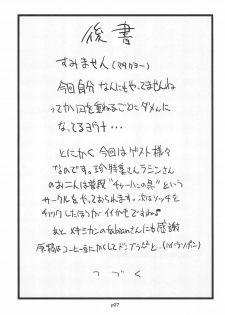 後書
すみません(マタカヨー)
今回自分なんにもやってませんね
ってか回を重ねるごとにダメんに
なってるヨウナ・・・
とにかく今回はゲスト様々
なのです。珍特急さんラミンさん
のお二人は普段"チャーハンの具"という
サークルをやっておられます。次はソッチを
チェックしたほうがイイかもですね♪
あと メキシカンのfabianさんにも感謝
原稿はコーヒー豆にかくしてドンブラすと…
つづく
p07